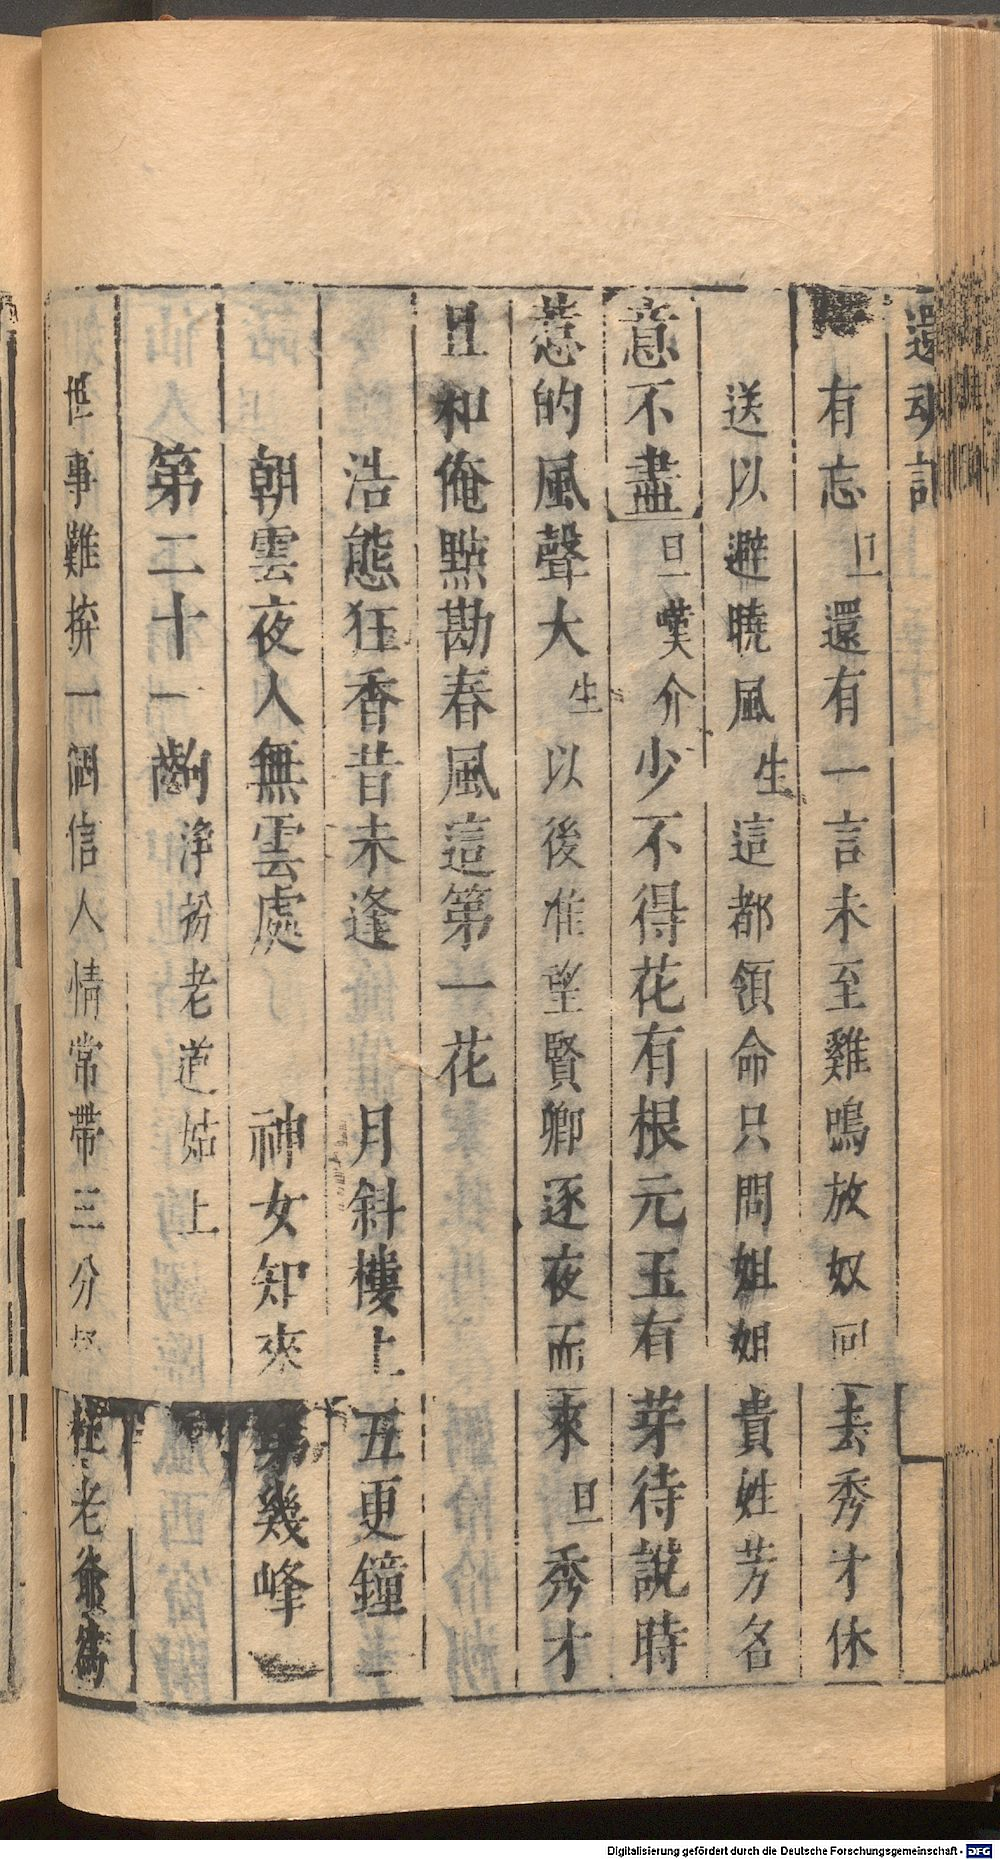 還魂記
有忘旦還有一言未至雞鳴放奴回去秀才休
送以避曉風生這都領命只問姐姐貴姓芳名
意不盡旦嘆介少不得花有根元玉有芽待說時
惹的風聲大生以後准望賢卿逐夜而來旦秀才
且和俺點勘春風這第一花
浩態狂香昔未逢 月斜樓上五更鐘
朝雲夜入無雲處 神女知來第幾峰
第二十一齣淨扮老道姑上
世事難拚一個信人情常帶三分杜老爺為
Digitalisierung gefördert durch die Deutsche Forschungsgemeinschaft - DFG